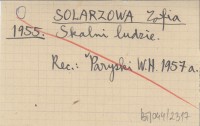 SOLARZOWA Zofia
1955. Skalni ludzie.
Rec.: Paryski W.H. 1957 a.